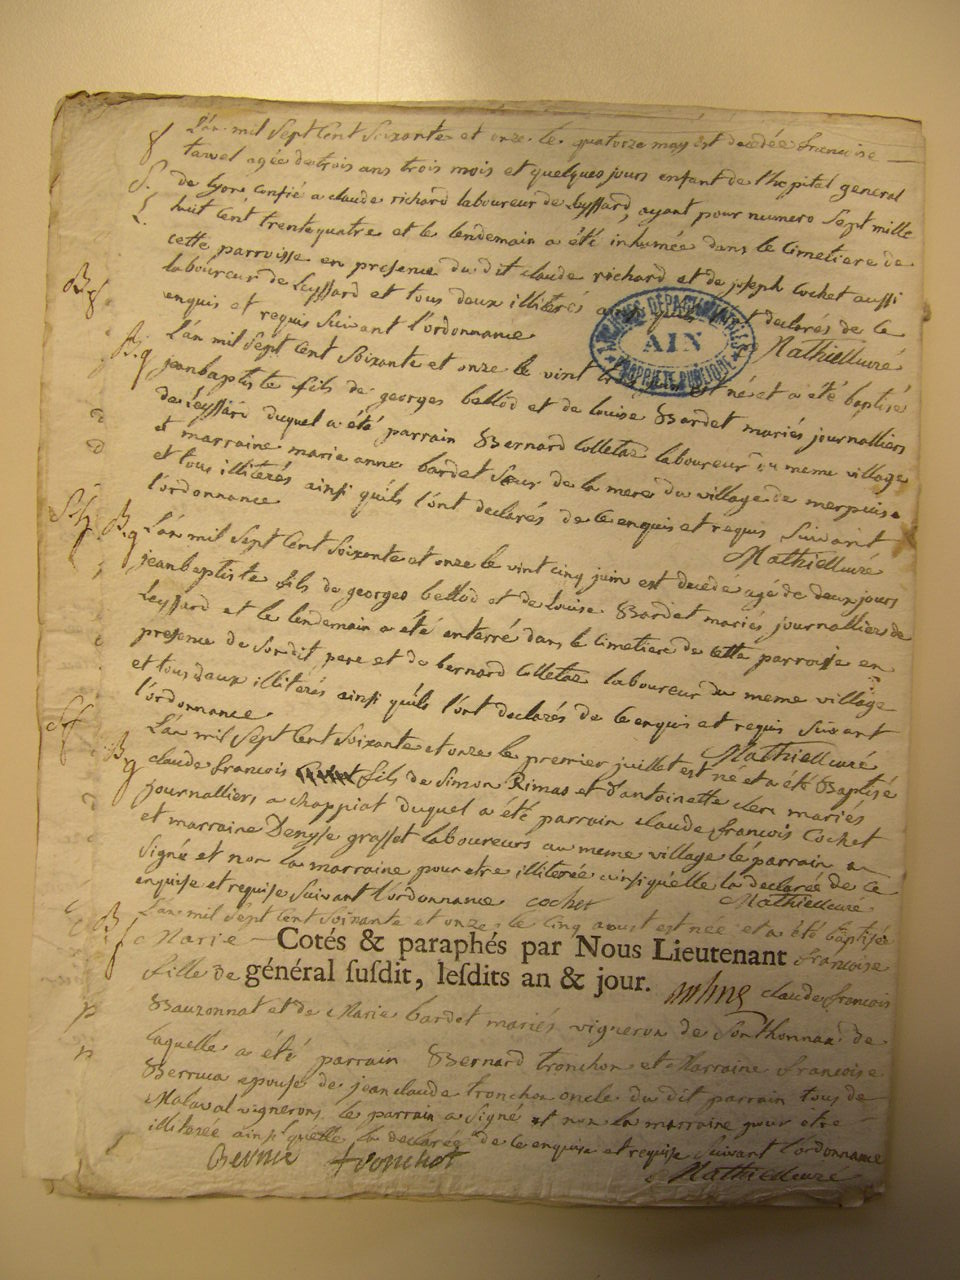 L'an mil sept cent soixante et onze le quatorze may est decedée francoise
tavel agée de trois ans trois mois et quelques jours enfant de l'hopital general
de lyon confié a claude richard laboureur de leyssard, ayant pour numero sept mille
huit cent trente quatre et le lendemain a été inhumée dans le cimetiere de
cette parroisse en presence du dit claude richard et de joseph cochet aussi
laboureur de leyssard et tous deux illiterés declarés de ce
enquis et requis suivant l'ordonnance Mathieu curé
ARCHIVES DÉPARTEMENTALES
AIN
PROPRIÉTÉ PUBLIQUE
B.
L'an mil sept cent soixante et onze le vint juin est né et a été baptisé
jean baptiste fils de georges bellod et de louise Bardet mariés journalliers
de leyssard duquel a été parrain Bernard colletaz laboureur du meme village
et marraine marie anne bardet sœur de la mere du village de
et tous illiterés ainsi qu'ils l'ont declarés de ce enquis et requis suivant
l'ordonnance Mathieu curé
L'an mil sept cent soixante et onze le vint cinq juin est decedé agé de deux jours
jean baptiste fils de georges bellod et de louise Bardet mariés journalliers de
Leyssard et le lendemain a été enterré dans le cimetiere de cette parroisse en
presence de son dit pere et de bernard colletaz laboureur du meme village
et tous deux illiterés ainsi qu'ils l'ont declarés de ce enquis et requis suivant
l'ordonnance Mathieu curé
B
L'an mil sept cent soixante et onze le premier juillet est né et a été Baptisé
claude francois fils de simon Rimao et d'antoinette clerc mariés
journalliers a chappiat duquel a été parrain claude francois Cochet
et marraine Denyse grosset laboureurs au meme village le parrain a
signé et non la marraine pour etre illiterée ainsi qu'elle la declarée de ce
enquise et requise suivant l'ordonnance cochet Mathieu curé
B
L'an mil sept cent soixante et onze le cinq aoust est née et a été baptisée
Marie francoise
Cotés & paraphés par Nous Lieutenant
fille de claude francois
général susdit, lesdits an & jour.
Bauzonnat et de Marie bardet mariés vigneron de Sonthonnax de
laquelle a été parrain Bernard tronchon et Marraine francoise
epouse de jean claude tronchon oncle du dit parrain tous de
Malaval vignerons le parrain a signé et non la marraine pour etre
illiterée ainsi qu'elle la declarée de ce enquise et requise suivant l'ordonnance
Mathieu curé